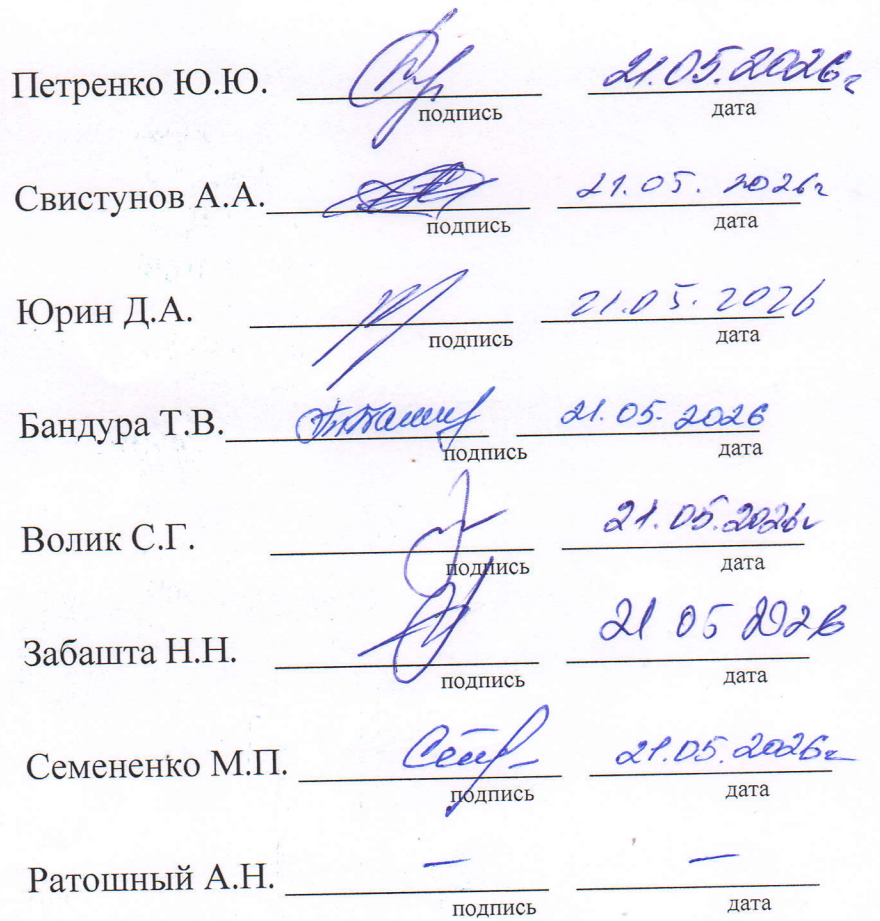 Петренко Ю.Ю. 21.05.2026г
подпись дата
Свистунов А.А. 21.05.2026г
подпись дата
Юрин Д.А. 21.05.2026
подпись дата
Бандура Т.В. 21.05.2026
подпись дата
Волик С.Г. 21.05.2026г
подпись дата
Забашта Н.Н. 21 05 2026
подпись дата
Семененко М.П. 21.05.2026г
подпись дата
Ратошный А.Н. – –
подпись дата